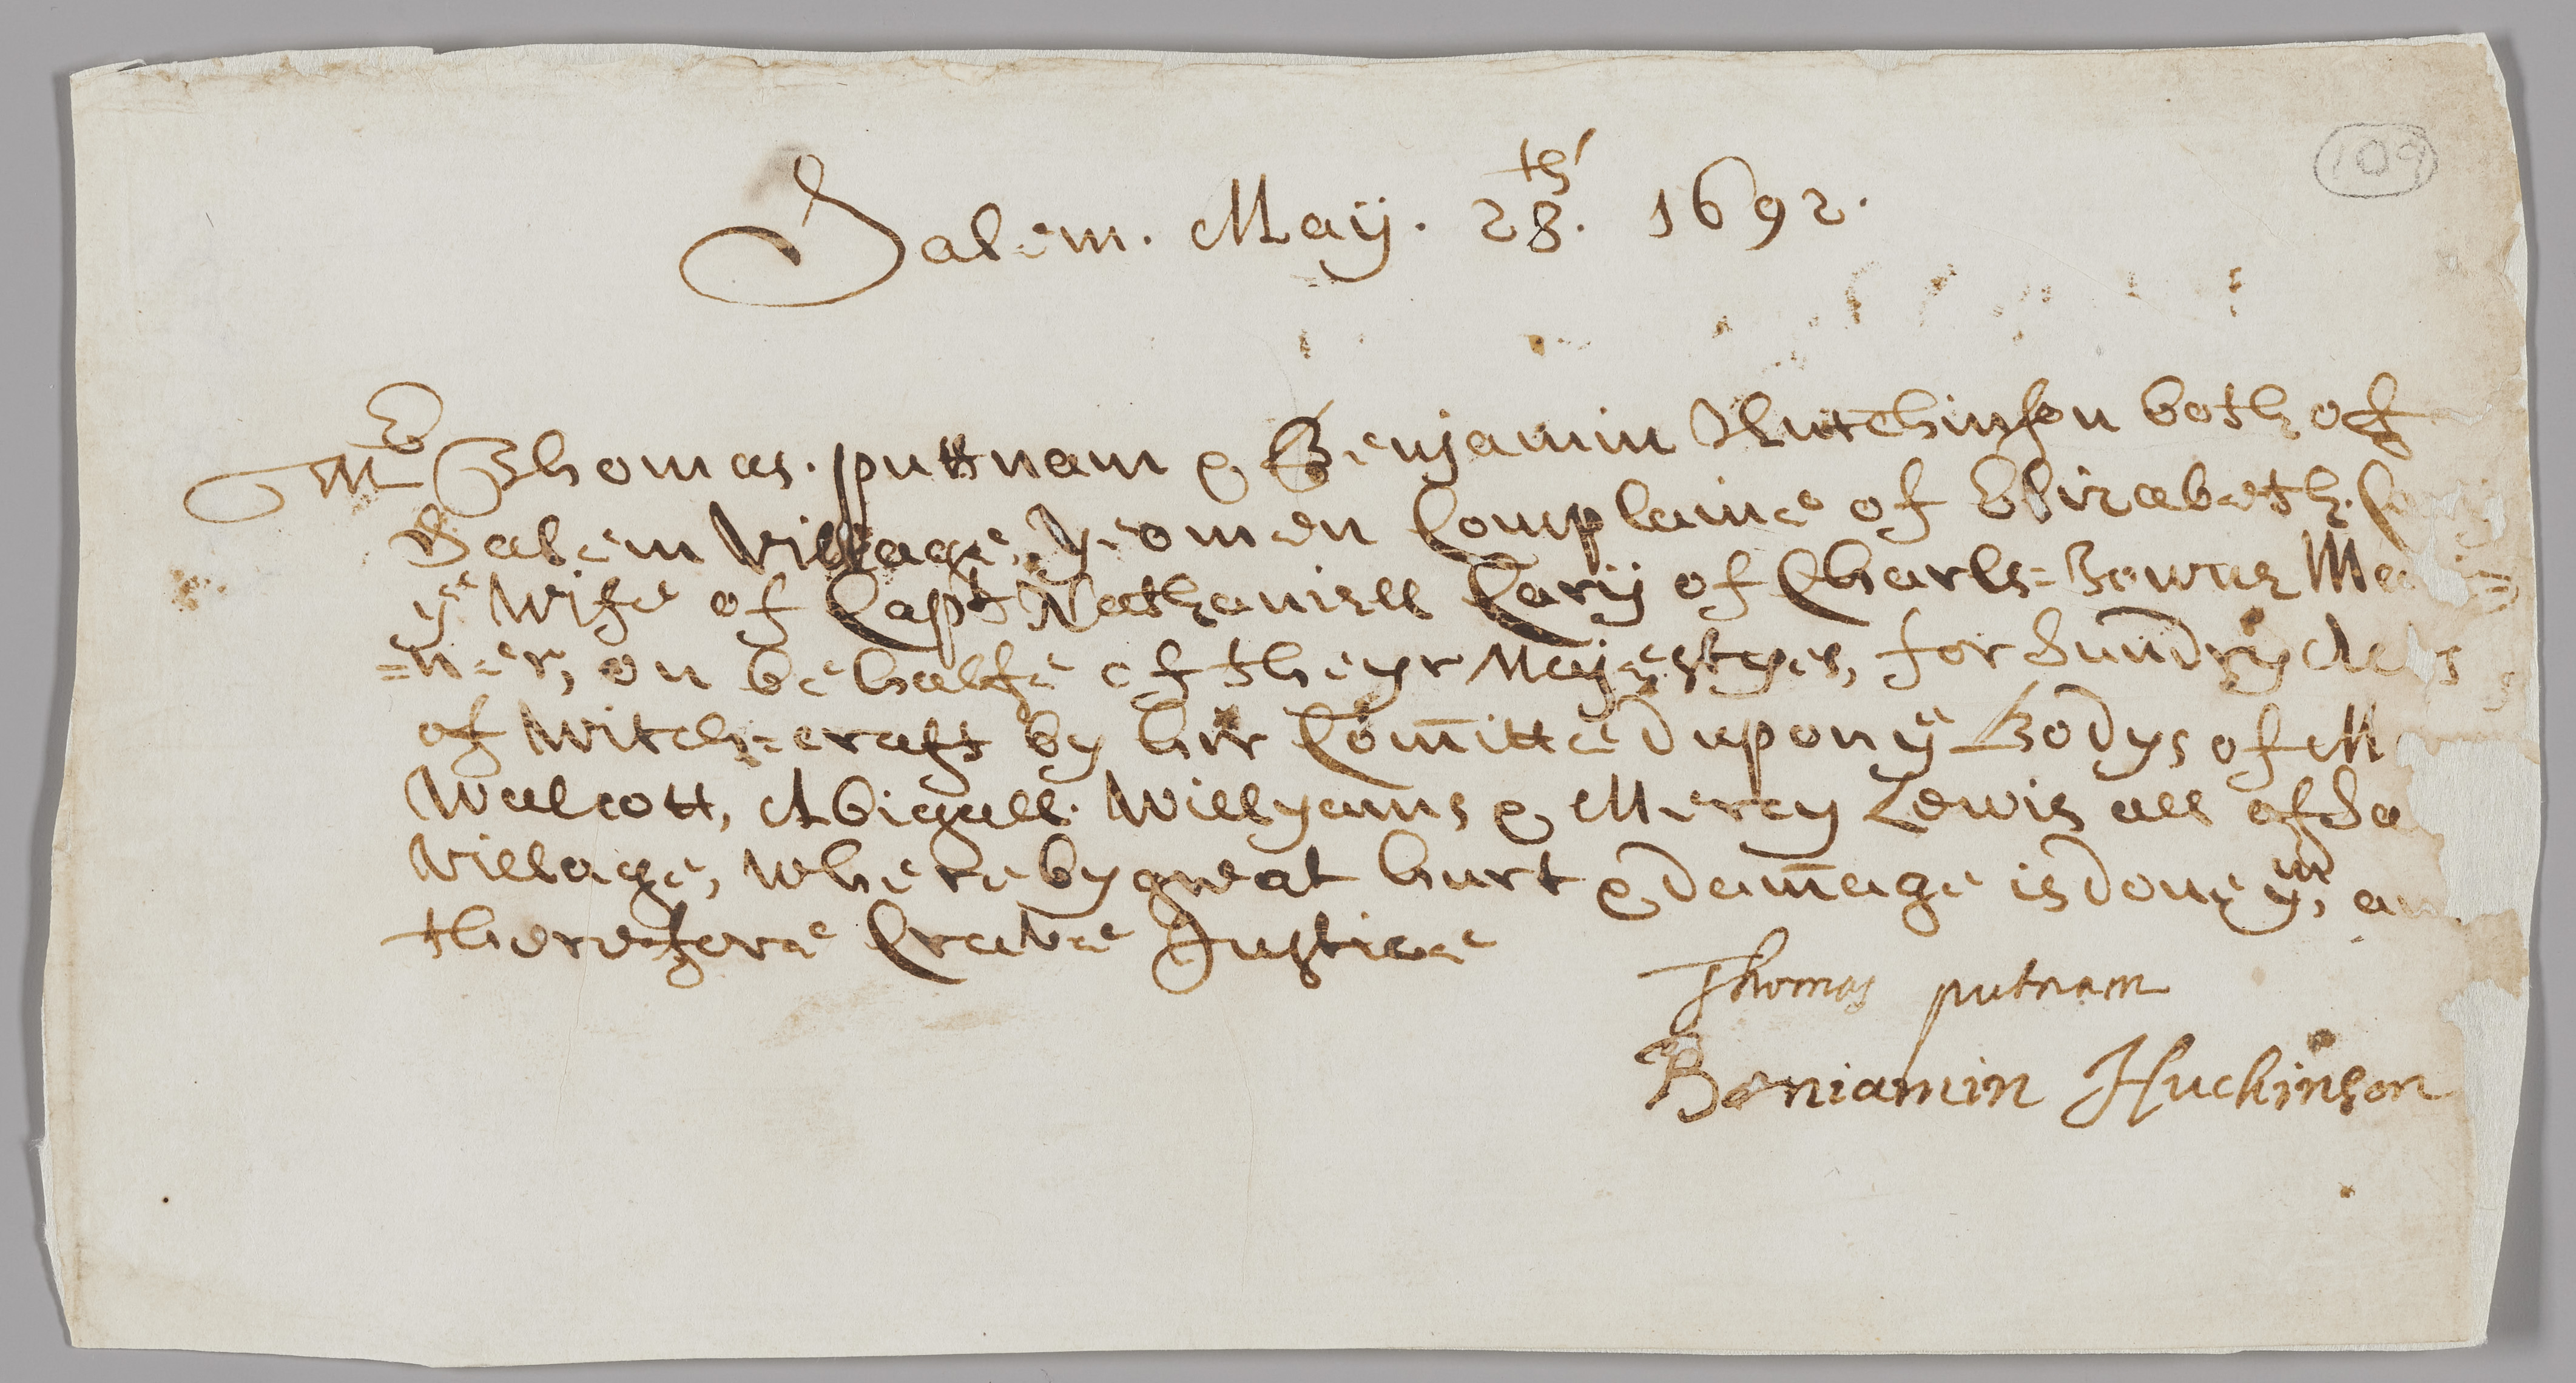 Salem. Maÿ. 28.th 1692.
109
Thomas. puttnam & Benjamin Hutchinson both of
Salem Village, yeomen Complaine of Elizabeth.
ye Wife of Capt Nathaniell Carÿ of Charls=Towne
=ner, on behalfe of theyr Majestyes, for Sundry
of Witch=craft by hir Com̄itted upon ye Bodys of
Walcott, Abigall. Willyams & Mercy Lewis all of
Village, Whereby great hurt & dam̄age is done ym,
therefore Crave Justice
Thomas putnam
Beniamin Huckinson